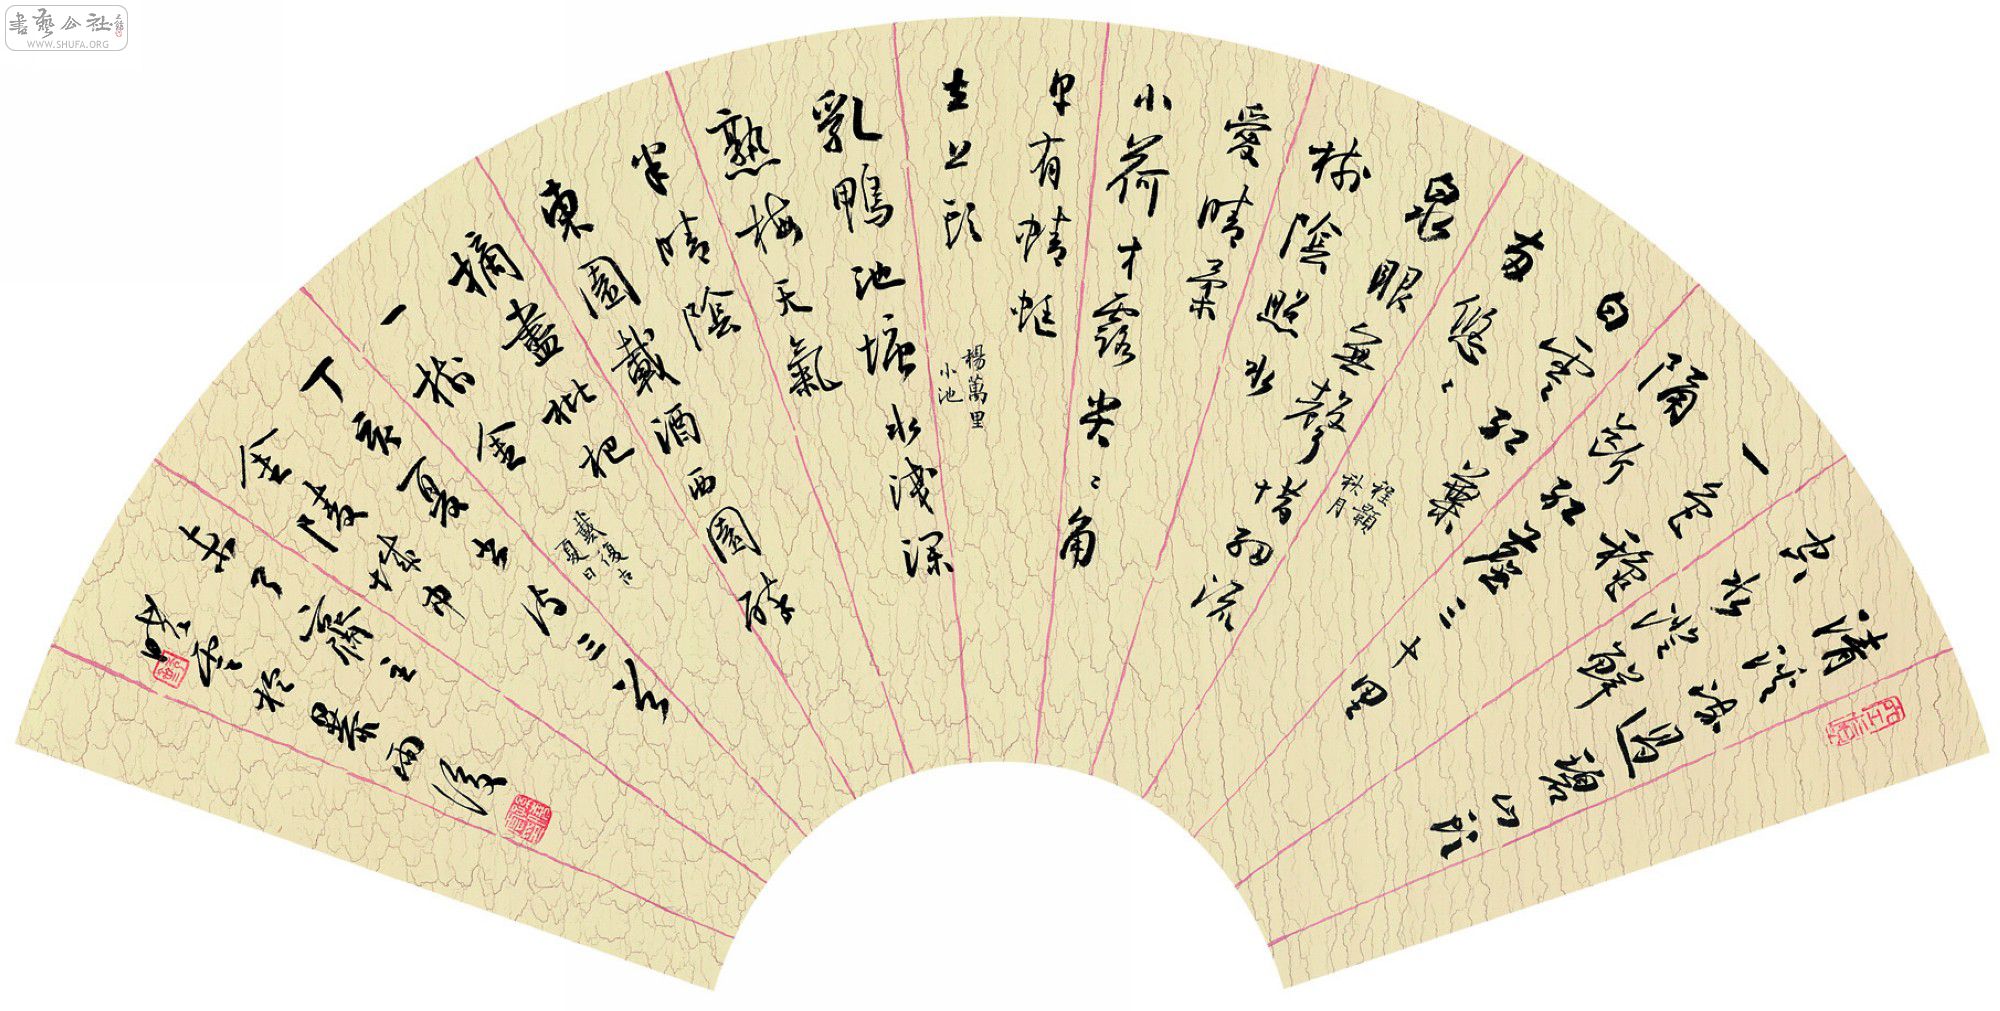 清溪流過碧山頭
空水澄鮮
一色穐
隔斷紅塵三十里
白雲紅葉
兩悠々
程顥
秋月
泉眼無聲惜細流
樹陰照水
愛晴柔
小荷才露尖々角
早有蜻蜓
立上頭
楊萬里
小池
乳鴨池塘水淺深
熟梅天氣
半晴陰
東園載酒西園醉
摘盡枇杷
一樹金
戴復古
夏日
丁亥夏古詩三首
金陵城中
了齋主
於暮雨後
書藝公社
WWW.SHUFA.ORG